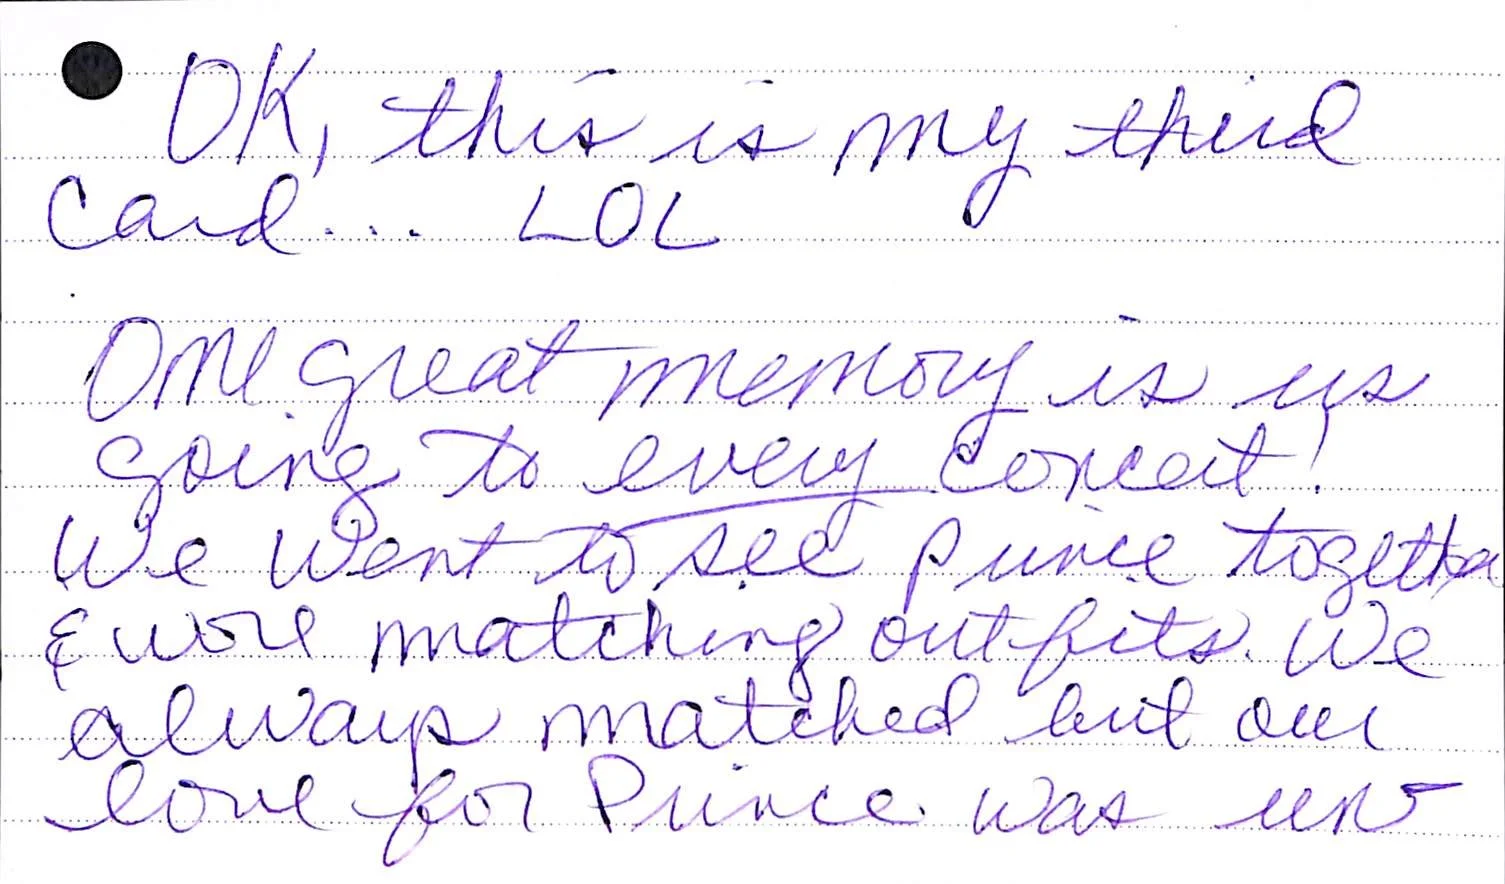 OK, this is my third
card... LOL
One great memory is us
going to every concert!
We went to see Prince together
& wore matching outfits. We
always matched but our
love for Prince was un-